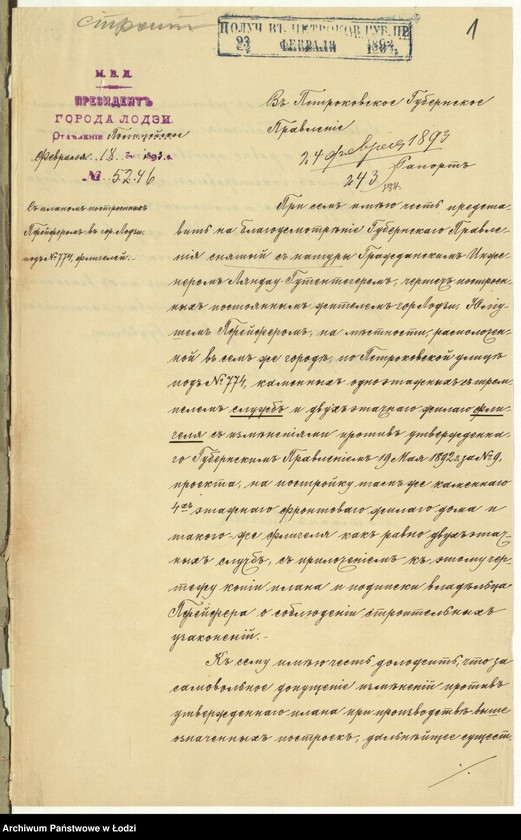 строит
1
ПОЛУЧ. ВЪ ПЕТРОКОВ. ГУБ. ПР.
23 ФЕВРАЛЯ 1893
М. В. Д.
ПРЕЗИДЕНТЪ
ГОРОДА ЛОДЗИ.
Отдѣленіе
Февраля 18 дня 1893 г.
№ 5246
Въ Петроковское Губернское
Правленіе
24 февраля 1893
243
Рапортъ
Съ планомъ построенныхъ
Пфейферомъ въ гор. Лодзи,
подъ № 774, флигелей.-
При семъ имѣю честь предста-
вить на благоусмотрѣніе Губернскаго Правле-
нія снятый съ натуры Гражданскимъ Инже-
неромъ Ляндау-Гутентегеромъ, чертежъ построен-
ныхъ постояннымъ жителемъ гор. Лодзи,
Пфейферомъ, на мѣстности, расположен-
ной въ семъ же городѣ, по Петроковской улицѣ
подъ № 774, каменныхъ одноэтажныхъ
службъ и двухъэтажнаго жилаго фли-
геля съ измѣненіями противъ утвержденна-
го Губернскимъ Правленіемъ 19 Мая 1892 г. за № 9,
проекта, на постройку тамъ же каменнаго
4хъ этажнаго фронтоваго жилаго дома и
такого-же флигеля какъ равно двухъэтаж-
ныхъ службъ, съ приложеніемъ къ этому чер-
тежу копіи плана и подписки владѣльца
Пфейфера о соблюденіи строительныхъ
узаконеній.-
Къ сему имѣю честь доложить, что за
самовольное допущеніе измѣненій противъ
утвержденнаго плана при производствѣ выше
означенныхъ построекъ, дальнѣйшее сущест.
Archiwum Państwowe w Łodzi